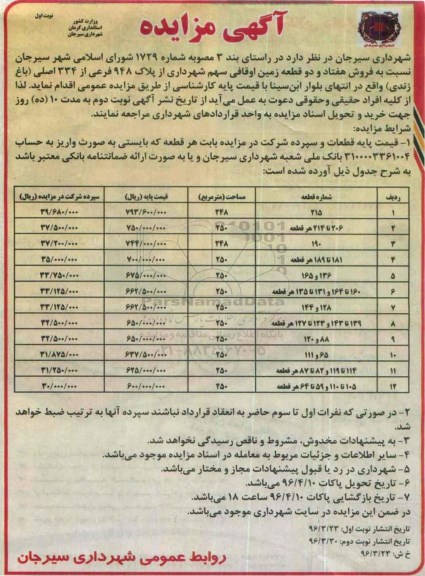 نوبت اول
آگهی مزایده
وزارت کشور
استانداری کرمان
شهرداری سیرجان
شهرداری سیرجان در نظر دارد در راستای بند ۳ مصوبه شماره ۱۷۲۹ شورای اسلامی شهر سیرجان
نسبت به فروش هفتاد و دو قطعه زمین اوقافی سهم شهرداری از پلاک ۹۴۸ فرعی از ۳۳۴ اصلی (باغ
زندی) واقع در انتهای بلوار ابن‌سینا با قیمت پایه کارشناسی از طریق مزایده عمومی اقدام نماید. لذا
از کلیه افراد حقیقی وحقوقی دعوت به عمل می‌آید از تاریخ نشر آگهی نوبت دوم به مدت ۱۰ (ده) روز
جهت خرید و تحویل اسناد مزایده به واحد قراردادهای شهرداری مراجعه نمایند.
شرایط مزایده:
۱- قیمت پایه قطعات و سپرده شرکت در مزایده بابت هر قطعه که بایستی به صورت واریز به حساب
۳۱۰۰۰۰۳۳۶۱۰۰۴ بانک ملی شعبه شهرداری سیرجان و یا به صورت ارائه ضمانتنامه بانکی معتبر باشد
به شرح جدول ذیل آورده شده است:
ردیف شماره قطعه مساحت (مترمربع) قیمت پایه (ریال) سپرده شرکت در مزایده (ریال)
۱ ۲۱۵ ۲۴۸ ۷۹۳/۶۰۰/۰۰۰ ۳۹/۶۸۰/۰۰۰
۲ ۲۰۶ تا ۲۱۴ هر قطعه ۲۵۰ ۷۵۰/۰۰۰/۰۰۰ ۳۷/۵۰۰/۰۰۰
۳ ۱۹۰ ۲۴۸ ۷۴۴/۰۰۰/۰۰۰ ۳۷/۲۰۰/۰۰۰
۴ ۱۸۱ تا ۱۸۹ هر قطعه ۲۵۰ ۷۰۰/۰۰۰/۰۰۰ ۳۵/۰۰۰/۰۰۰
۵ ۱۳۶ و ۱۶۵ ۲۵۰ ۶۷۵/۰۰۰/۰۰۰ ۳۳/۷۵۰/۰۰۰
۶ ۱۶۰ تا ۱۶۴ و ۱۳۱ تا ۱۳۵ هر قطعه ۲۵۰ ۶۶۲/۵۰۰/۰۰۰ ۳۳/۱۲۵/۰۰۰
۷ ۱۲۸ و ۱۴۴ ۲۵۰ ۶۶۲/۵۰۰/۰۰۰ ۳۳/۱۲۵/۰۰۰
۸ ۱۳۹ تا ۱۴۳ و ۱۲۳ تا ۱۲۷ هر قطعه ۲۵۰ ۶۵۰/۰۰۰/۰۰۰ ۳۲/۵۰۰/۰۰۰
۹ ۸۸ و ۱۲۰ ۲۵۰ ۶۵۰/۰۰۰/۰۰۰ ۳۲/۵۰۰/۰۰۰
۱۰ ۶۵ و ۱۱۱ ۲۵۰ ۶۳۷/۵۰۰/۰۰۰ ۳۱/۸۷۵/۰۰۰
۱۱ ۱۱۴ تا ۱۱۹ و ۸۲ تا ۸۷ هر قطعه ۲۵۰ ۶۲۵/۰۰۰/۰۰۰ ۳۱/۲۵۰/۰۰۰
۱۲ ۱۰۵ تا ۱۱۰ و ۵۹ تا ۶۴ هر قطعه ۲۵۰ ۶۰۰/۰۰۰/۰۰۰ ۳۰/۰۰۰/۰۰۰
ParsNamadData
۲- در صورتی که نفرات اول تا سوم حاضر به انعقاد قرارداد نباشند سپرده آنها به ترتیب ضبط خواهد
شد.
۳- به پیشنهادات مخدوش، مشروط و ناقص رسیدگی نخواهد شد.
۴- سایر اطلاعات و جزئیات مربوط به معامله در اسناد مزایده موجود می‌باشد.
۵- شهرداری در رد یا قبول پیشنهادات مجاز و مختار می‌باشد.
۶- تاریخ تحویل پاکات ۹۶/۴/۱۰ می‌باشد.
۷- تاریخ بازگشایی پاکات ۹۶/۴/۱۰ ساعت ۱۸ می‌باشد.
در ضمن این مزایده در سایت شهرداری موجود می‌باشد.
تاریخ انتشار نوبت اول: ۹۶/۳/۲۳
تاریخ انتشار نوبت دوم: ۹۶/۳/۳۰
خ ش: ۹۶/۳/۲۳
روابط عمومی شهرداری سیرجان